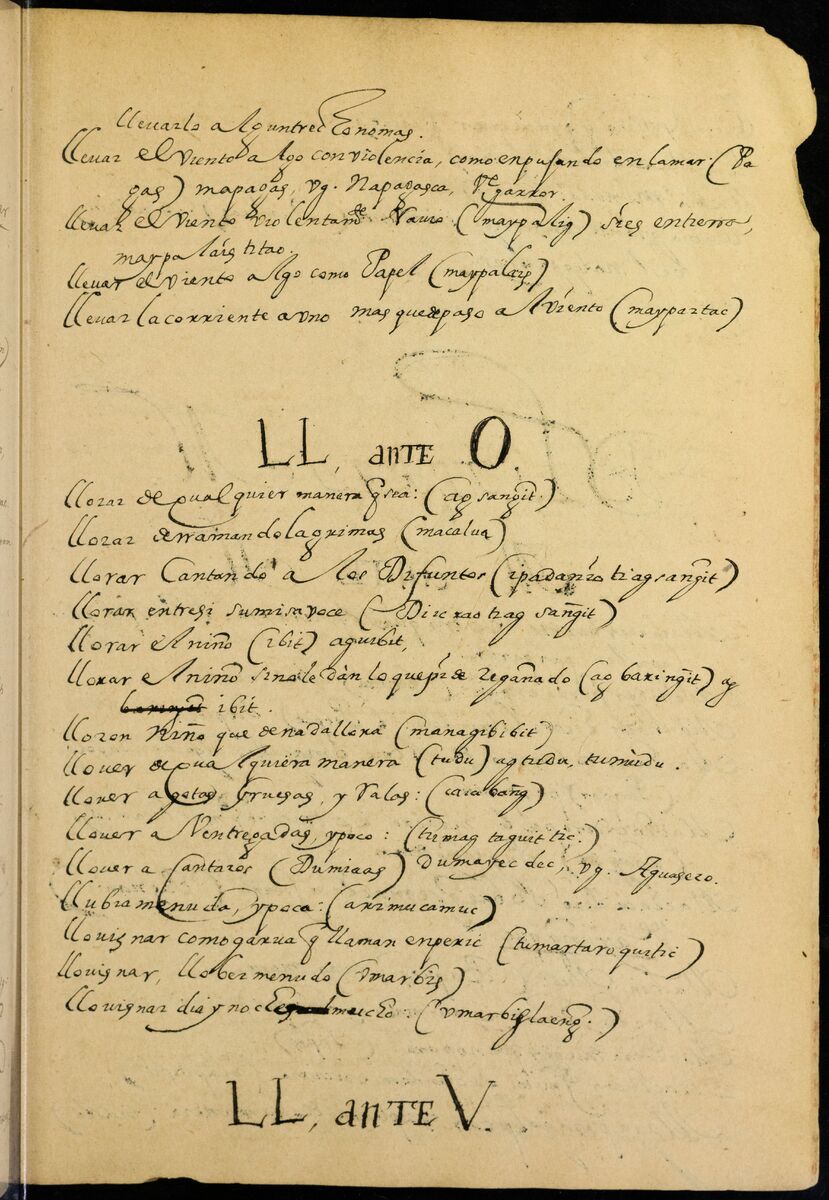 llevarlo a Alguntrec
llevar el viento a Algo con violencia, como enpusando en la mar. (Pa
gas) mapagas, vg. Napagasca,
llevar el viento violentamte Navio (maypalig) sies en tierra,
maypalais titao.
llevar el viento a Algo como Papel (maypalais)
llevar la corriente a uno mas que de paso a Al viento (maypartac)
LL, ante O.
llorar de qual quier manera q sea: (ag sangit.)
llorar derramando lagrimas (macalua)
llorar Cantando a los Difuntos (ipadanzo tiag sangit)
llorar entre si sumisa voce ( tiag sangit)
llorar el niño (ibit) aguibit,
llorar el niño sino le dan lo que pide regañado (ag baringit) ag
baringit ibit.
lloron Niño que de nada llora (managibibit)
llover de qual quiera manera (tudu) agtudu, tumudu.
llover a gotas gruesas, y Ralas: (cara bang)
llover a entregadas, y poco: (timag taguittic.)
llover a Cantaros (Dumicas) dumayec dec, vg. Aguasero.
llubia menuda, y poca: (arimucamuc)
llovisnar como garua q llaman en peru (tumartaroquitic)
llovisnar, llober menudo (umarbis)
llovisnar dia y noche mucho: (umarbis laeng.)
LL, ante V.